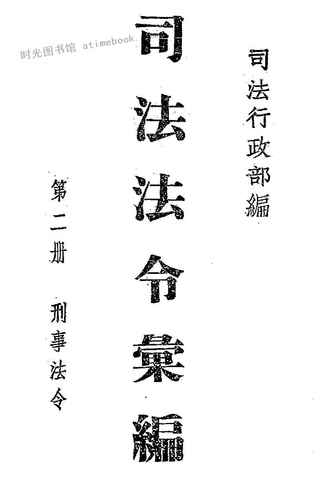 时光图书馆 atimebook.
司法行政部編
司法法令彙編
第二册 刑事法令